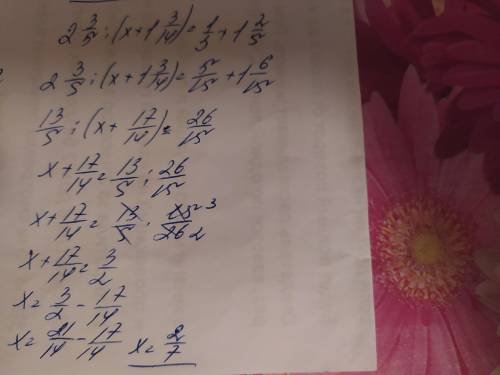 2 3/5 : (x + 1 3/14) = 1/3 + 1 2/5
2 3/5 : (x + 1 3/14) = 5/15 + 1 6/15
13/5 : (x + 17/14) = 26/15
x + 17/14 = 13/5 : 26/15
x + 17/14 = 13/5 · 15 3/26 2
x + 17/14 = 3/2
x = 3/2 - 17/14
x = 21/14 - 17/14 x = 2/7